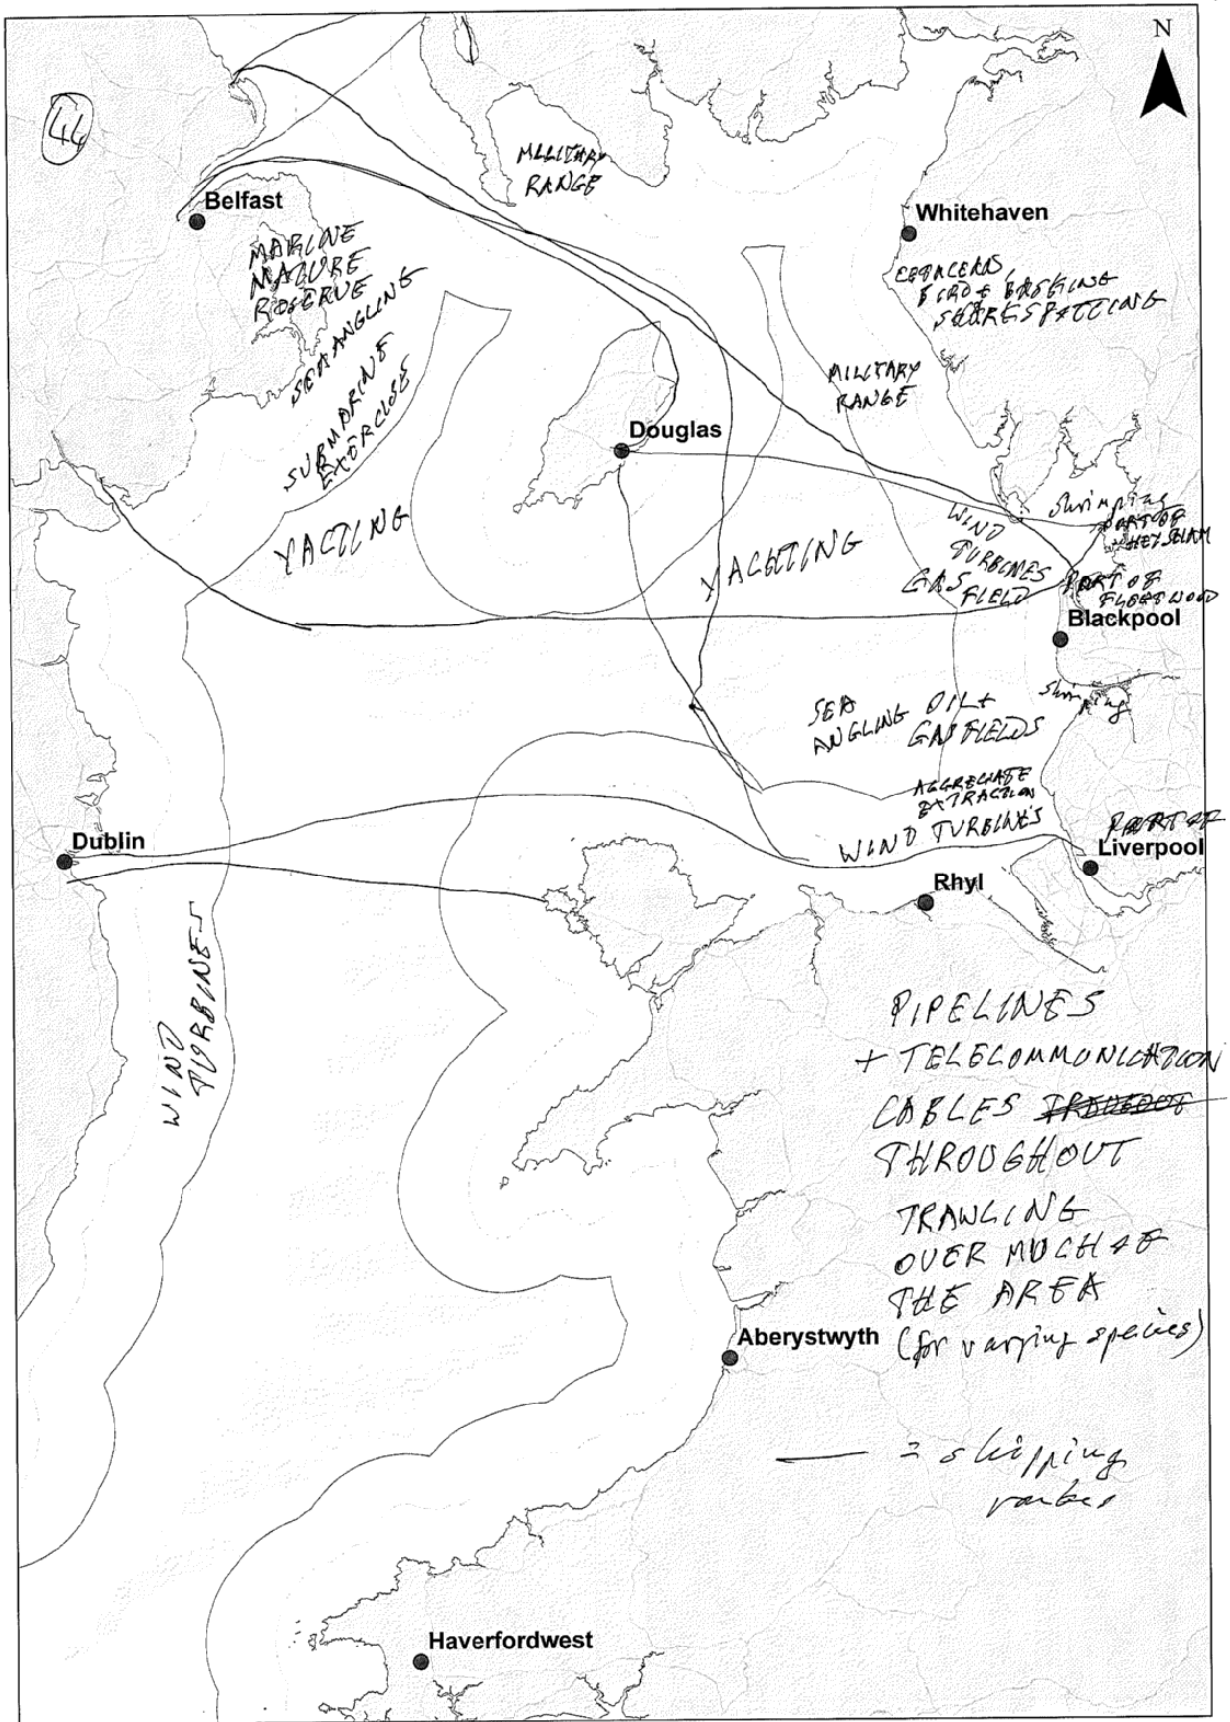 N
44
MILITARY
RANGE
Belfast
Whitehaven
MARINE
NATURE
RESERVE
SEA ANGLING
SUBMARINE
EXERCISE
CETACEANS,
BIRD & BASKING
SHARE SPOTTING
MILITARY
RANGE
Douglas
YACTING
YACHTING
WIND
TURBINES
GAS
FIELD
Shrimping
PORT OF
HEYSHAM
PORT OF
FLEETWOOD
Blackpool
Shrimping
SEA
ANGLING
OIL +
GAS FIELDS
AGGREGATE
EXTRACTION
WIND TURBINES
PORT OF
Liverpool
Dublin
Rhyl
WIND
TURBINES
PIPELINES
+ TELECOMMUNICATION
CABLES
THROUGHOUT
TRAWLING
OVER MUCH OF
THE AREA
(for varying species)
Aberystwyth
= shipping
routes
Haverfordwest